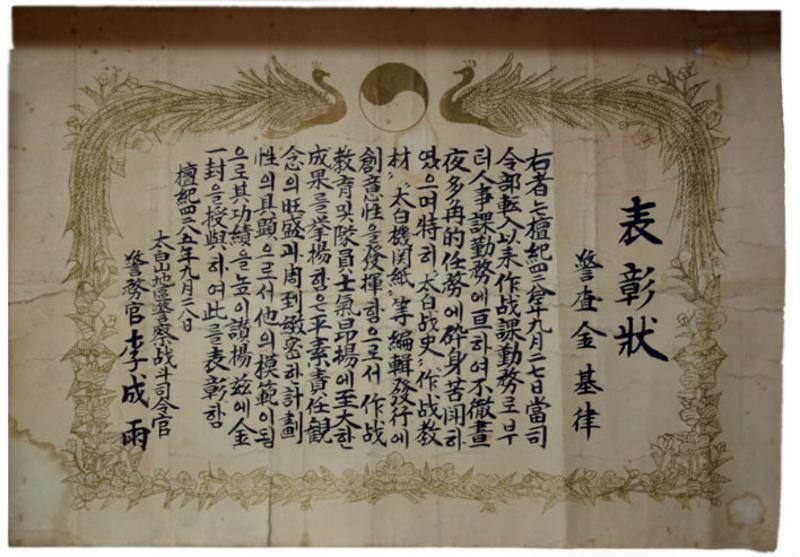 表彰狀
警査 金基律
右者는檀紀四二八四年九月二七日當司
令部轉入以来作战課勤務로부
터人事課勤務에亘하여不徹晝
夜多角的任務에碎身苦闘하
였으며特히"太白战史""作战教
材""太白機関紙"等編輯發行에
創意性을發揮함으로서作战
教育및隊員士氣昂揚에至大한
成果를挙揚함은平素責任観
念의旺盛과周到緻密한計劃
性의具顯으로서他의模範이됨
으로其功績을높이讃揚玆에金
一封을授與하여此를表彰함
檀紀四二八五年九月二八日
太白山地區警察战斗司令官
警務官李成雨